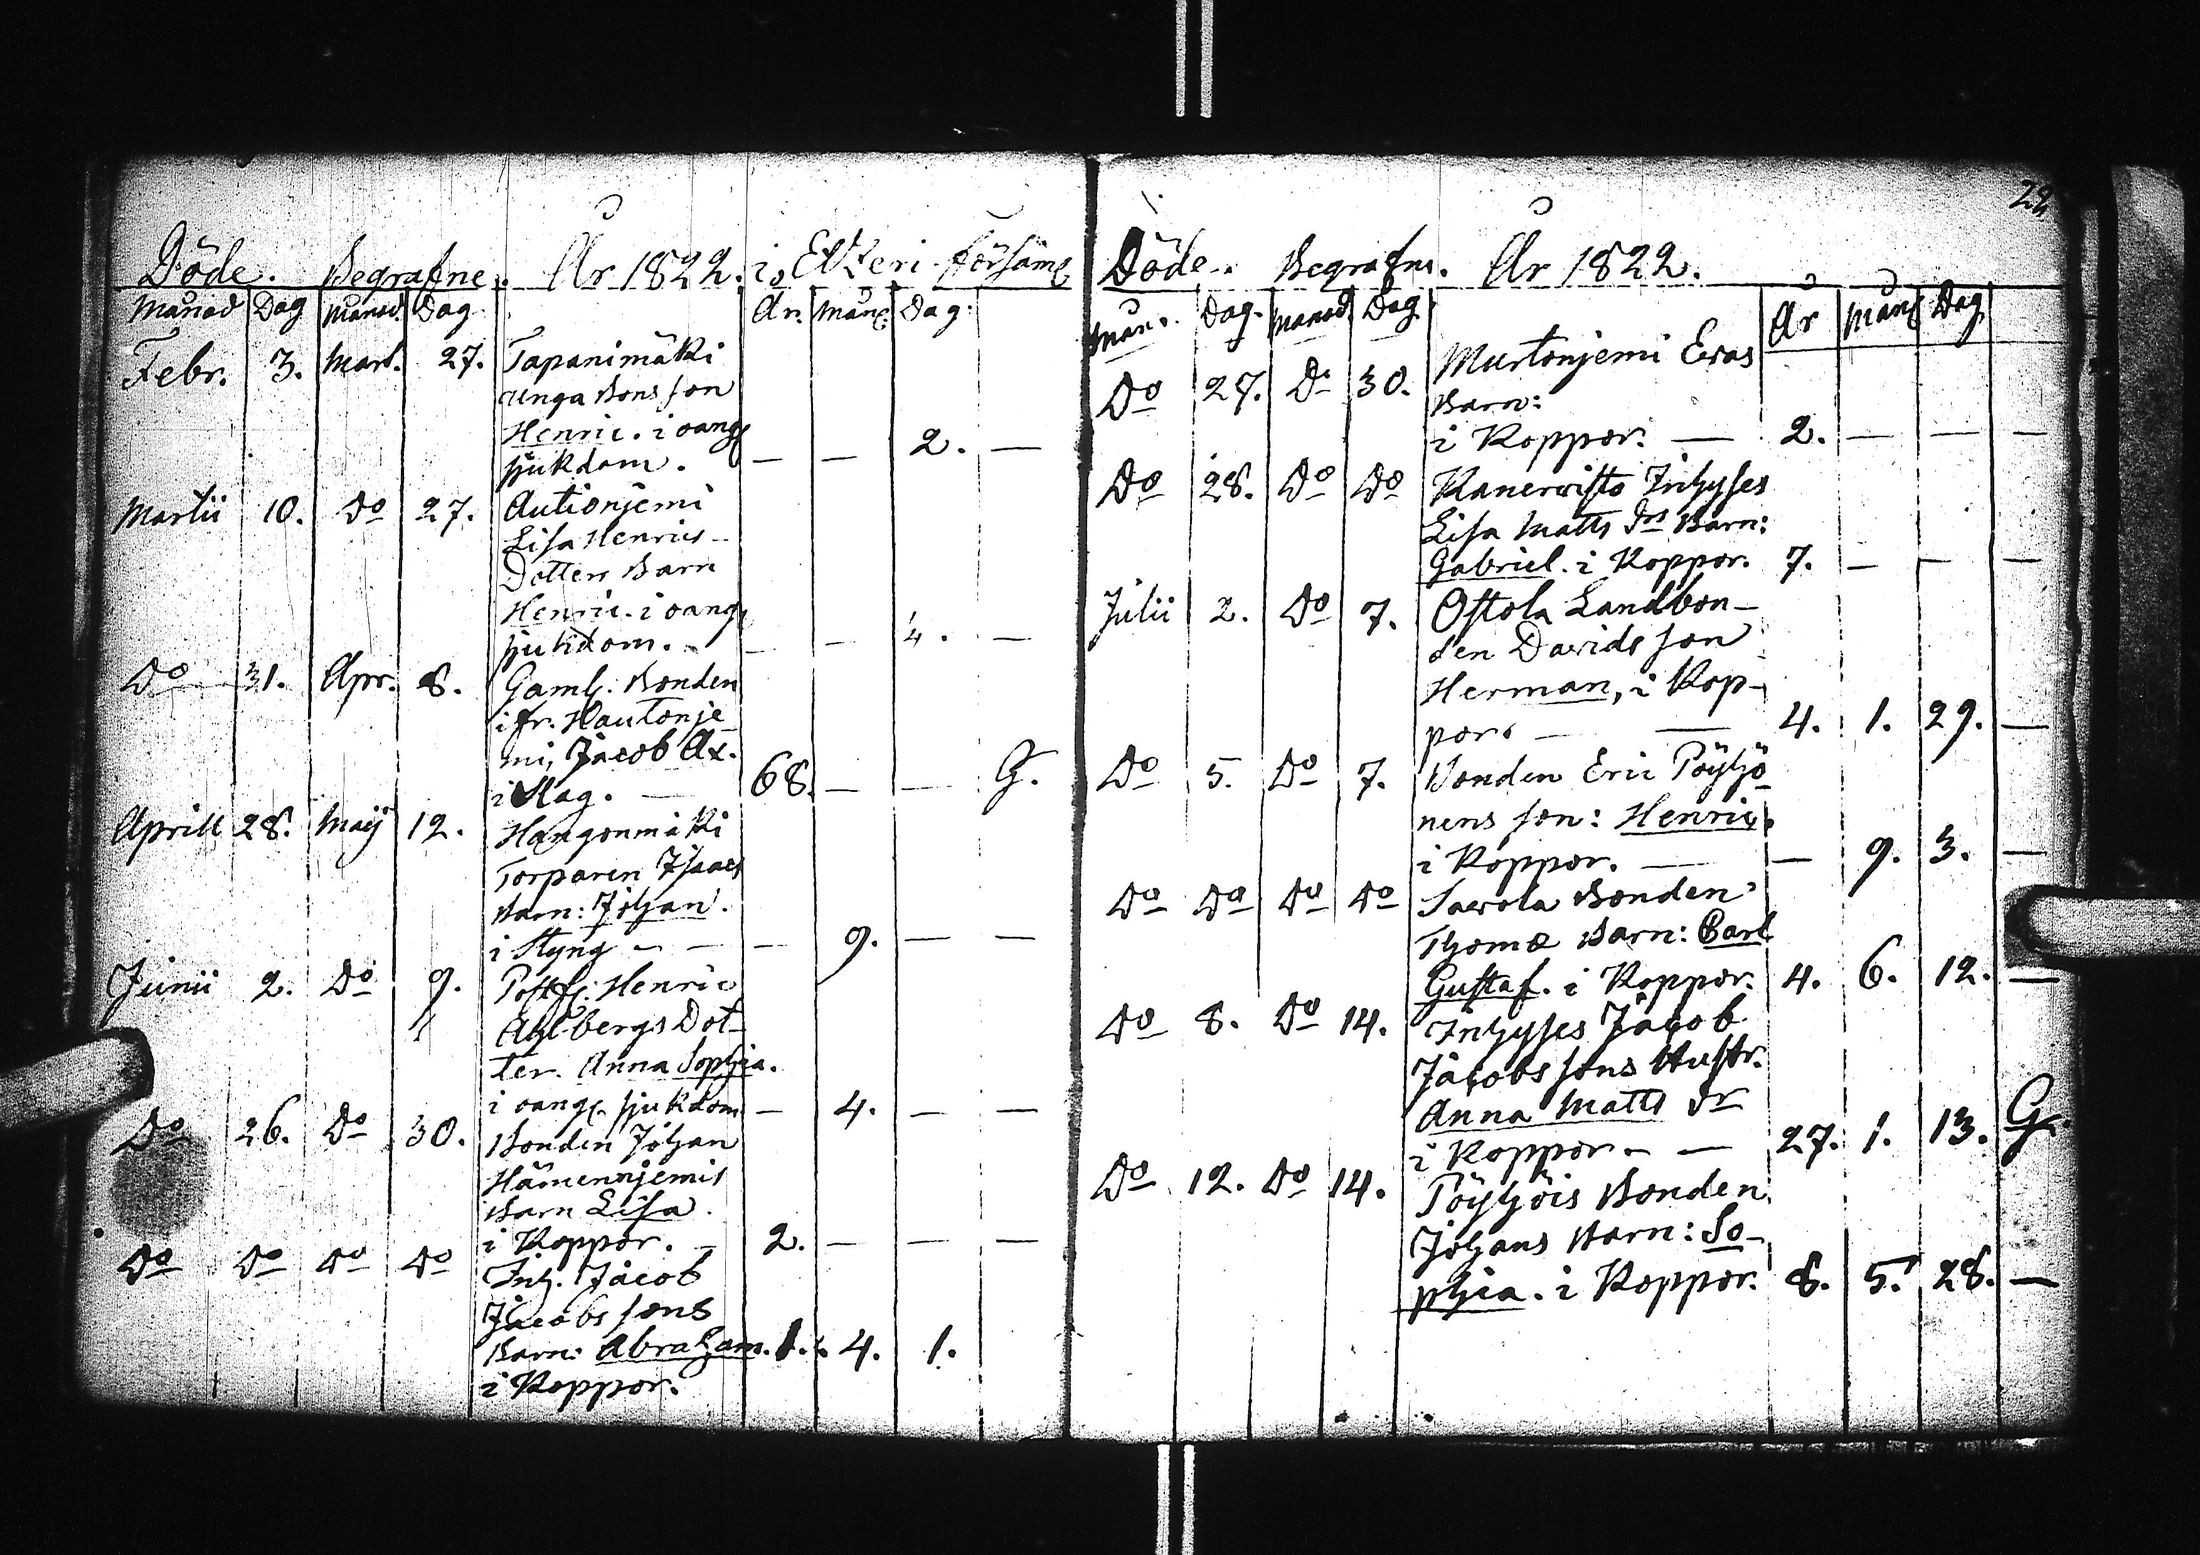 Döde. Begrafne. År 1822. i Etzeri Församl
Månad Dag Månad. Dag År. Mån. Dag.
Febr. 3. Mart. 27. Tapanimäki
unga Bons son
Henric. i oang
sjukdom. — — 2. —
Martii 10. Do 27. Autionjemi
Lisa Henrics
Dotters Barn
Henric. i oang
sjukdom. — — 4. —
Do 31. Apr. 8. Gaml. Bonden
ifr. Hautonje
mi, Jacob Ax.
i Slag. — 68. — — G.
Aprill 28. Maij 12. Hangonmäki
Torparen Isaacs
Barn: Johan.
i Styng — — — 9. — —
Junii 2. Do 9. Postf. Henric
Ahlbergs Dot-
ter. Anna Sophia.
i oang. sjukdom — 4. — —
Do 26. Do 30. Bonden Johan
Hämennjemis
Barn Lisa.
i Koppor. — 2. — — —
Do Do Do Do Inh. Jacob
Jacobs sons
Barn: Abraham. 1. 4. 1.
i Koppor.
Döde. Begrafne. År 1822.
Mån. Dag. Månad Dag År Mån Dag
Do 27. Do 30. Murtonjemi Evas
Barn:
i Koppor. — 2. — — —
Do 28. Do Do Kanervisto Inhyses
Lisa Matts Dr Barn:
Gabriel. i Koppor. 7. — — —
Julii 2. Do 7. Ostola Landbon-
den Davids son
Herman, i Kop-
por. — — 4. 1. 29. —
Do 5. Do 7. Bonden Eric Pöyhö
nens son: Henric.
i Koppor. — — 9. 3. —
Do Do Do Do Savola Bonden
Thomæ Barn: Carl
Gustaf. i Koppor. 4. 6. 12. —
Do 8. Do 14. Inhyses Jacob
Jacobs sons Hustr.
Anna Matts Dr
i Koppor. — — 27. 1. 13. G.
Do 12. Do 14. Pöyhöis Bonden
Johans Barn: So-
phia. i Koppor. 8. 5. 28. —